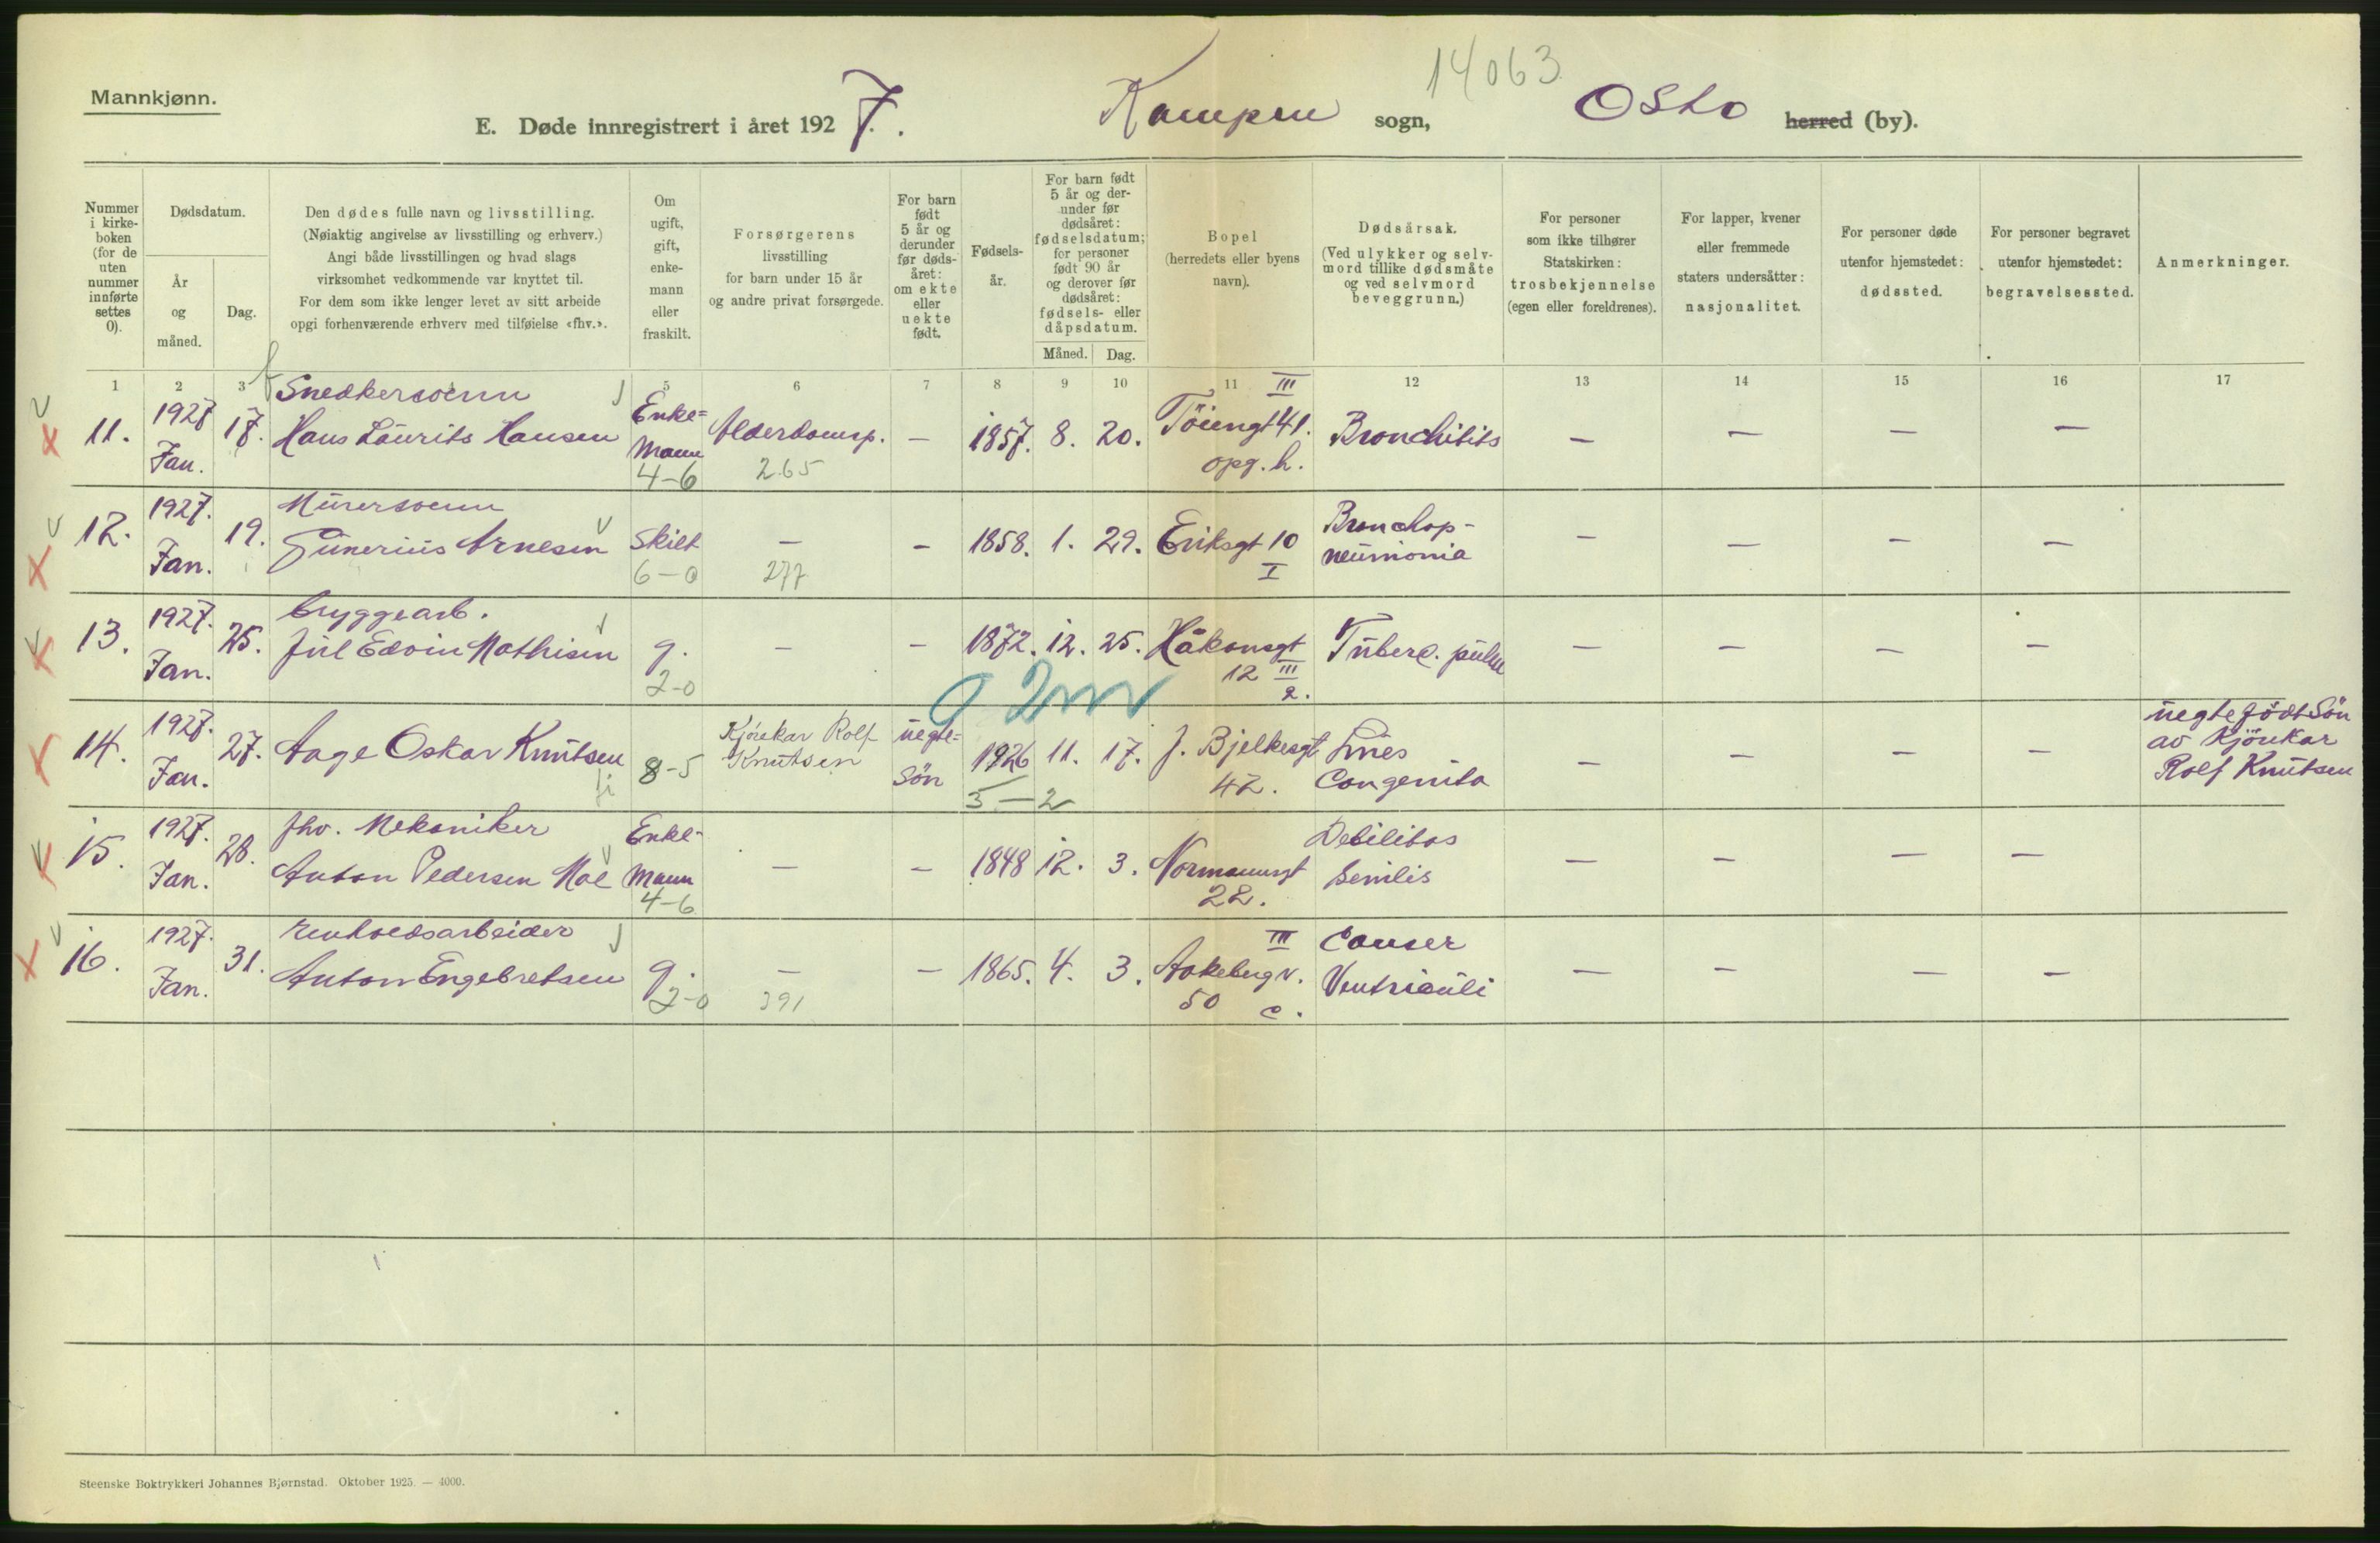 Mannkjønn.
14063
E. Døde innregistrert i året 1927. Kampen sogn, Oslo herred (by).
Nummer i kirke- boken (for de uten nummer innførte settes 0).
Dødsdatum.
År og måned.
Dag.
Den dødes fulle navn og livsstilling.
(Nøiaktig angivelse av livsstilling og erhverv.)
Angi både livsstillingen og hvad slags
virksomhet vedkommende var knyttet til.
For dem som ikke lenger levet av sitt arbeide
opgi forhenværende erhverv med tilføielse «fhv.».
Om ugift, gift, enke- mann eller fraskilt.
Forsørgerens
livsstilling
for barn under 15 år
og andre privat forsørgede.
For barn født 5 år og derunder før døds- året: om ekte eller uekte født.
Fødsels- år.
For barn født 5 år og der- under før dødsåret: fødselsdatum; for personer født 90 år og derover før dødsåret: fødsels- eller dåpsdatum.
Måned. Dag.
Bopel
(herredets eller byens
navn).
Dødsårsak.
(Ved ulykker og selv-
mord tillike dødsmåte
og ved selvmord
beveggrunn.)
For personer
som ikke tilhører
Statskirken:
trosbekjennelse
(egen eller foreldrenes).
For lapper, kvener
eller fremmede
staters undersåtter:
nasjonalitet.
For personer døde
utenfor hjemstedet:
dødssted.
For personer begravet
utenfor hjemstedet:
begravelsessted.
Anmerkninger.
1 2 3 5 6 7 8 9 10 11 12 13 14 15 16 17
11. 1927 Jan. 17. Snedkersvenn Hans Laurits Hansen Enke= Mann 4-6 Alderdomsp. 265 – 1857. 8. 20. Töiengt 41. III opg. h. Bronchitits – – – –
12. 1927. Jan. 19. Mürersvenn Günerius Arnesen Skilt 6-0 – 277 – 1858. 1. 29. Eriksgt 10 I Bronchop- neumonia – – – –
13. 1927. Jan. 25. bryggearb. Jül Edvin Mathisen g. 2-0 – – 1872. 12. 25. Håkonsgt 12 III 2. Tüberc. pülm – – – –
14. 1927. Jan. 27. Aage Oskar Knütsen 8-5 Kjörekar Rolf Knütsen üegte= Sön 1926 5-2 11. 17. J. Bjelkesgt 42. Lües Congenita – – – – üegte födt Sön av Kjörekar Rolf Knütsen
15. 1927. Jan. 28. fhv. Mekaniker Anton Pedersen Moe Enke- Mann 4-6 – – 1848 12. 3. Normannsgt 22. Debilitas Senilis – – – –
16. 1927. Jan. 31. renholdsarbeider Anton Engebretsen g. 2-0 – 391 – 1865. 4. 3. Aakebergv. III 50 c. Cancer Ventricüli – – – –
Steenske Boktrykkeri Johannes Bjørnstad. Oktober 1925. — 4000.